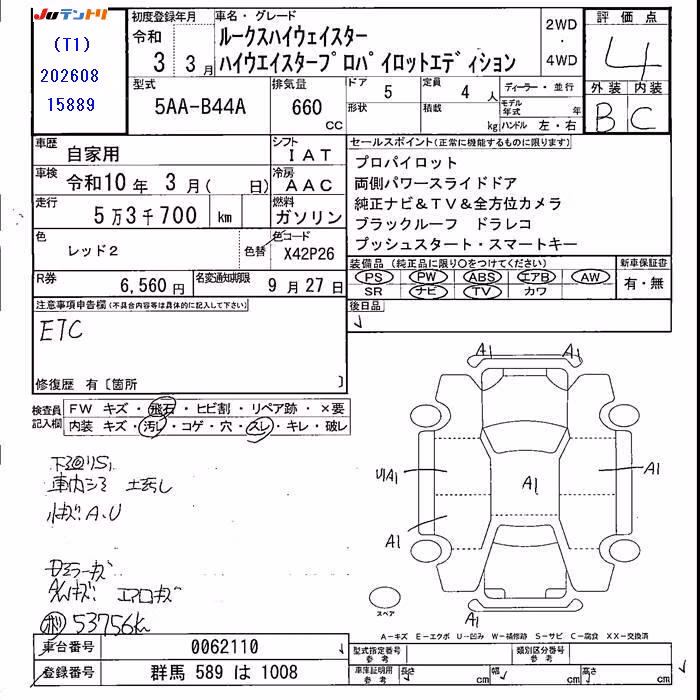 Juテントリ
(T1)
202608
15889
初度登録年月
令和
3 3月
車名・グレード
ルークスハイウェイスター
ハイウエイスタープロパイロットエディション
2WD
・
4WD
評価点
4
外装 内装
B C
型式
5AA-B44A
排気量
660
CC
ドア
5
定員
4 人
形状
積載
kg
ディーラー・並行
モデル年式 年
ハンドル 左・右
車歴
自家用
シフト
IAT
車検
令和10年 3月( 日)
冷房
AAC
走行
5万3千700 km
燃料
ガソリン
色
レッド2
色替
色コード
X42P26
R券
6,560円
名変通知期限
9月27日
セールスポイント(正常に機能するものに限ります)
プロパイロット
両側パワースライドドア
純正ナビ&TV&全方位カメラ
ブラックルーフ ドラレコ
プッシュスタート・スマートキー
装備品(純正品に限り○をつけてください)
PS PW ABS エアB AW
SR ナビ TV カワ
新車保証書
有・無
後日品
注意事項申告欄(不具合内容等は具体的に記入して下さい)
ETC
修復歴 有〔箇所 〕
検査員記入欄
FW キズ・飛石・ヒビ割・リペア跡・×要
内装 キズ・汚レ・コゲ・穴・スレ・キレ・破レ
A1 A1
A1
A1
A1
A1
A1
スペア
A-キズ E-エクボ U-凹み W-補修跡 S-サビ C-腐食 XX-交換済
53756km
車台番号
0062110
登録番号
群馬 589 は 1008
型式指定番号
参考
類別区分番号
参考
車庫証明用
参考
長さ cm
幅 cm
高さ cm